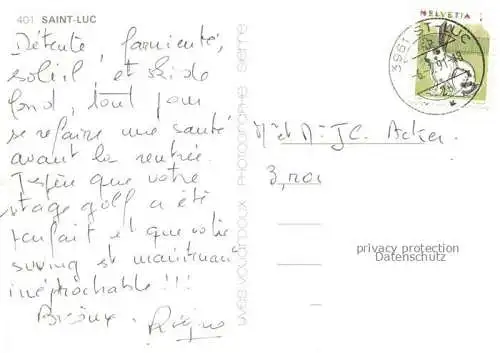 401 SAINT-LUC
Détente, farniente,
soleil, et ski de
fond, tout pour
se refaire une santé
avant la rentrée.
J'espère que votre
stage golf a été
parfait et que votre
swing est maintenant
inéprochable !!!
Bisoux.
yves vouardoux PHOTOGRAPHE sierre
HELVETIA
3961 ST-LUC
M et M: J.C. Acker
privacy protection
Datenschutz